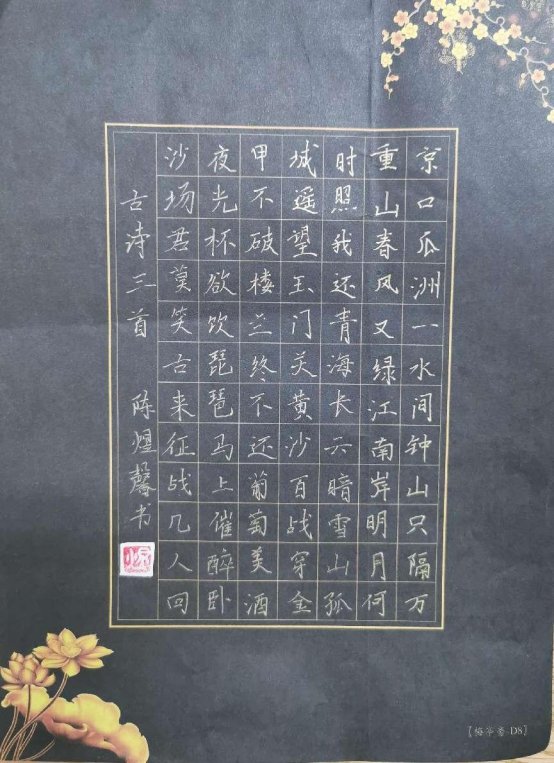 京口瓜洲一水间钟山只隔万
重山春风又绿江南岸明月何
时照我还青海长云暗雪山孤
城遥望玉门关黄沙百战穿金
甲不破楼兰终不还葡萄美酒
夜光杯欲饮琵琶马上催醉卧
沙场君莫笑古来征战几人回
古诗三首 陈煜馨书
D8